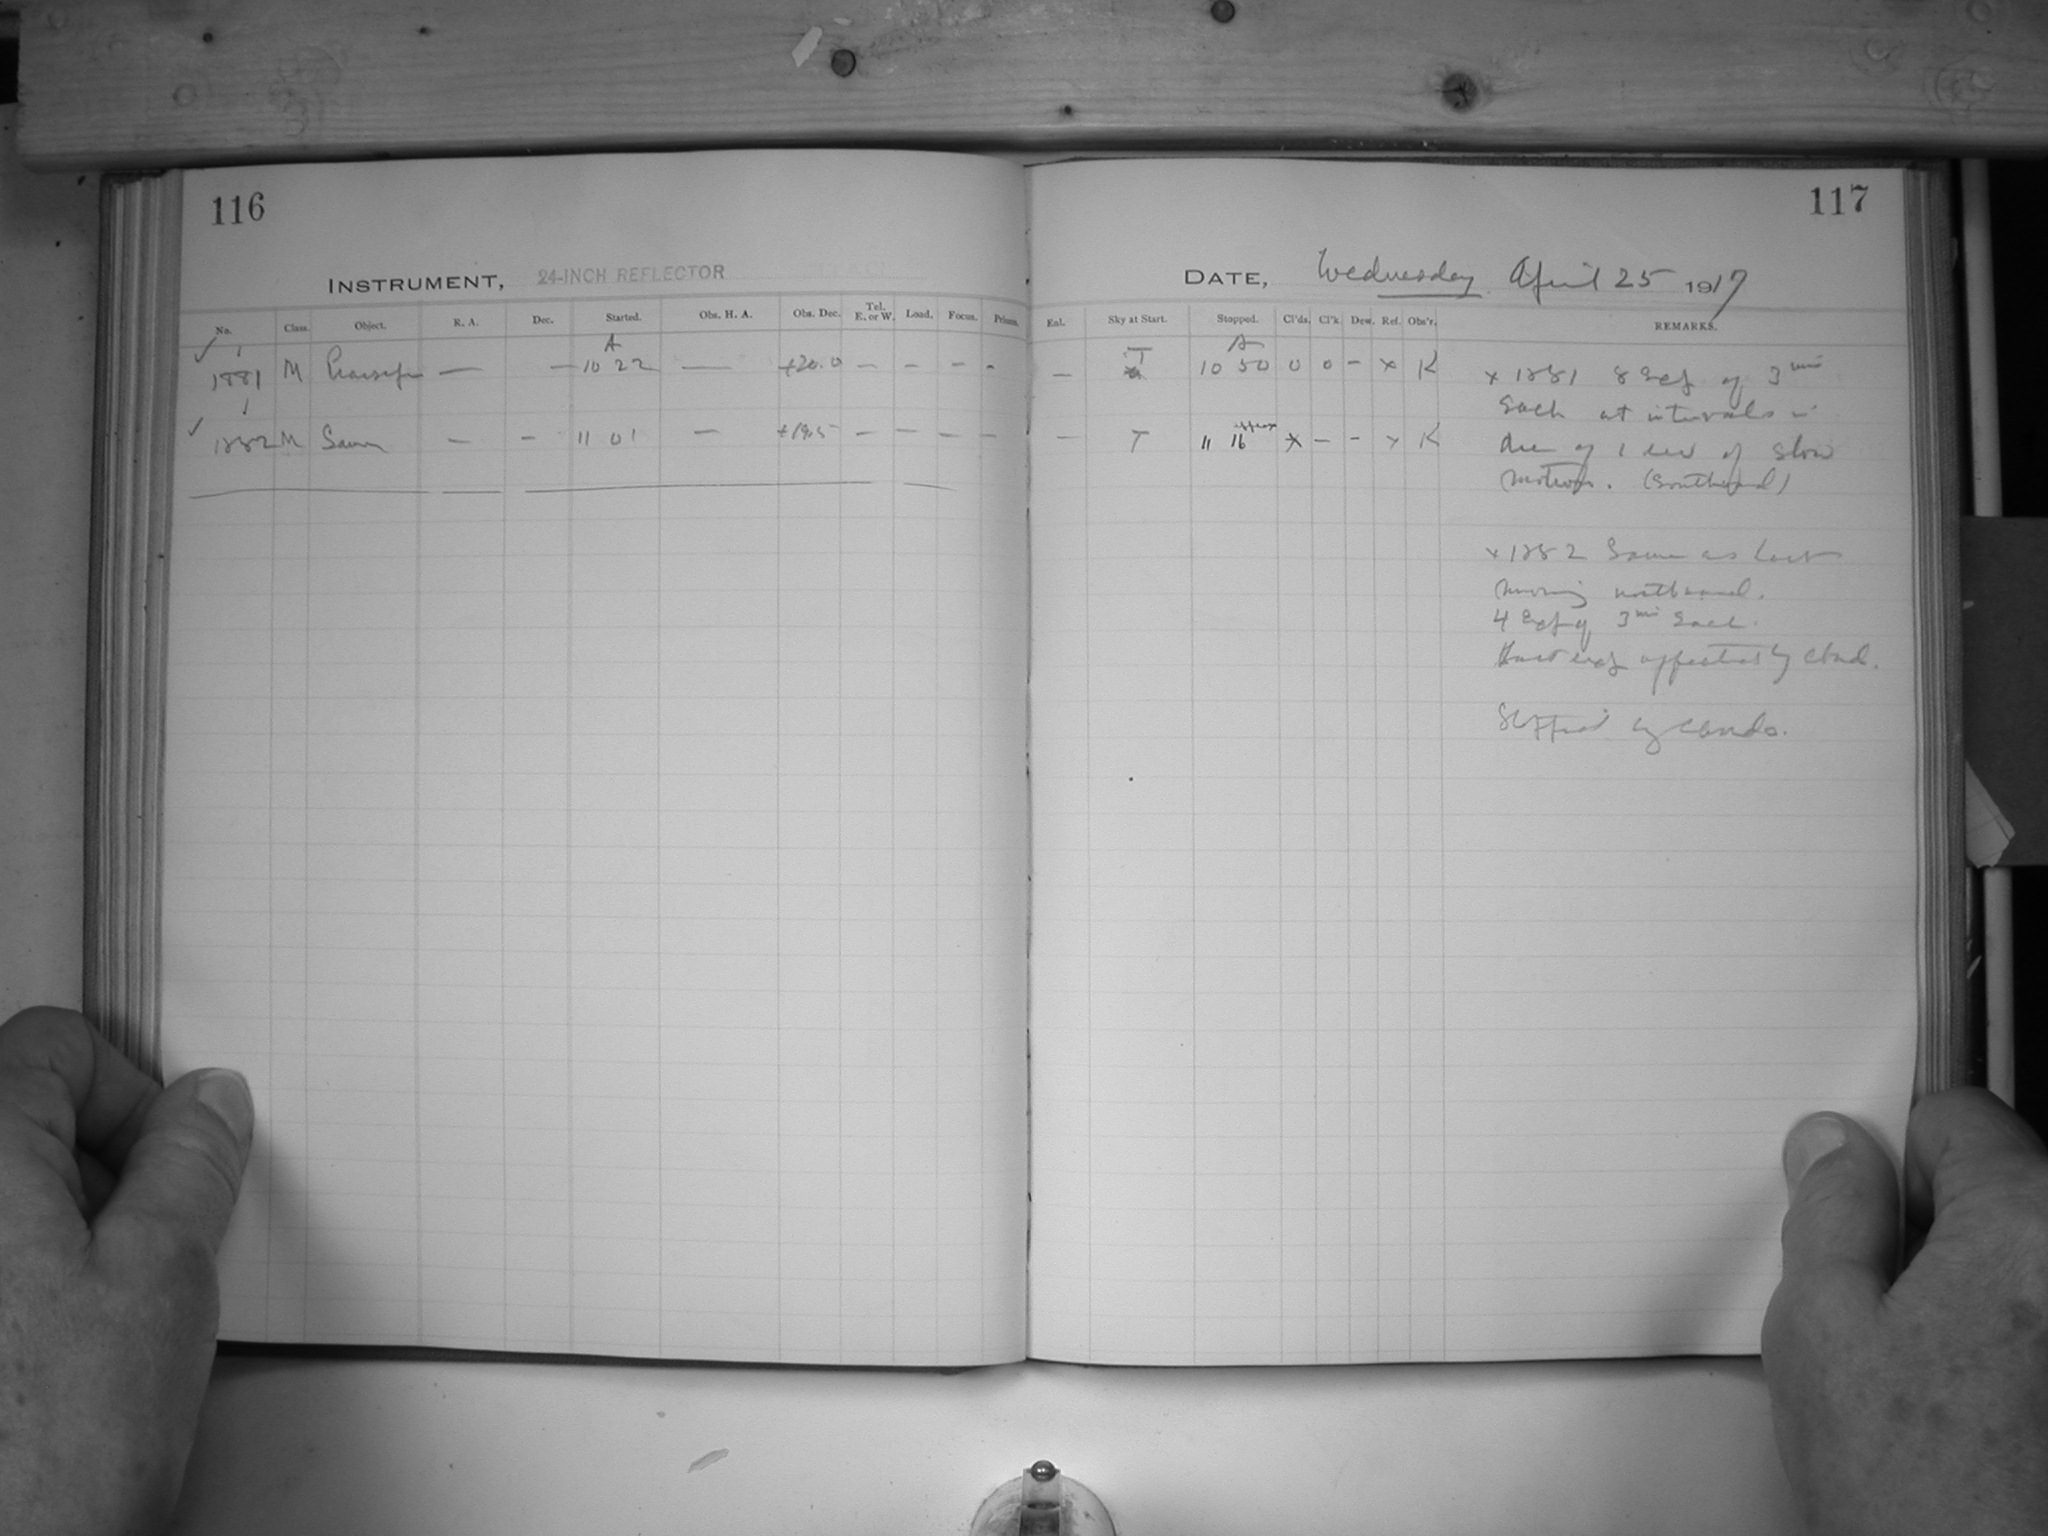 116
INSTRUMENT, 24-INCH REFLECTOR
No. Class. Object. R. A. Dec. Started. Obs. H. A. Obs. Dec. Tel. E. or W. Load. Focus. Prisms.
A
✓ 1881 M Praesepe — — 10 22 — +20.0 — — — -
✓ 1882 M Same — — 11 01 — +19.5 — — — —
117
DATE, Wednesday April 25 1917
Enl. Sky at Start. Stopped. Cl'ds. Cl'k. Dew. Ref. Obs'r. REMARKS.
A
— T 10 50 0 0 — x K
— T 11 16 approx x — — x K
x 1881 8 Exp of 3 min
Each at intervals in
Dec of 1 rev of slow
motion. (Southward)
x 1882 Same as last
moving northward.
4 Exp of 3 min Each.
exp affected by cloud.
Stopped by clouds.